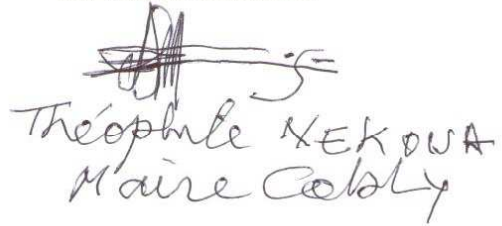 Théophile NEKOUA
Maire Cobly